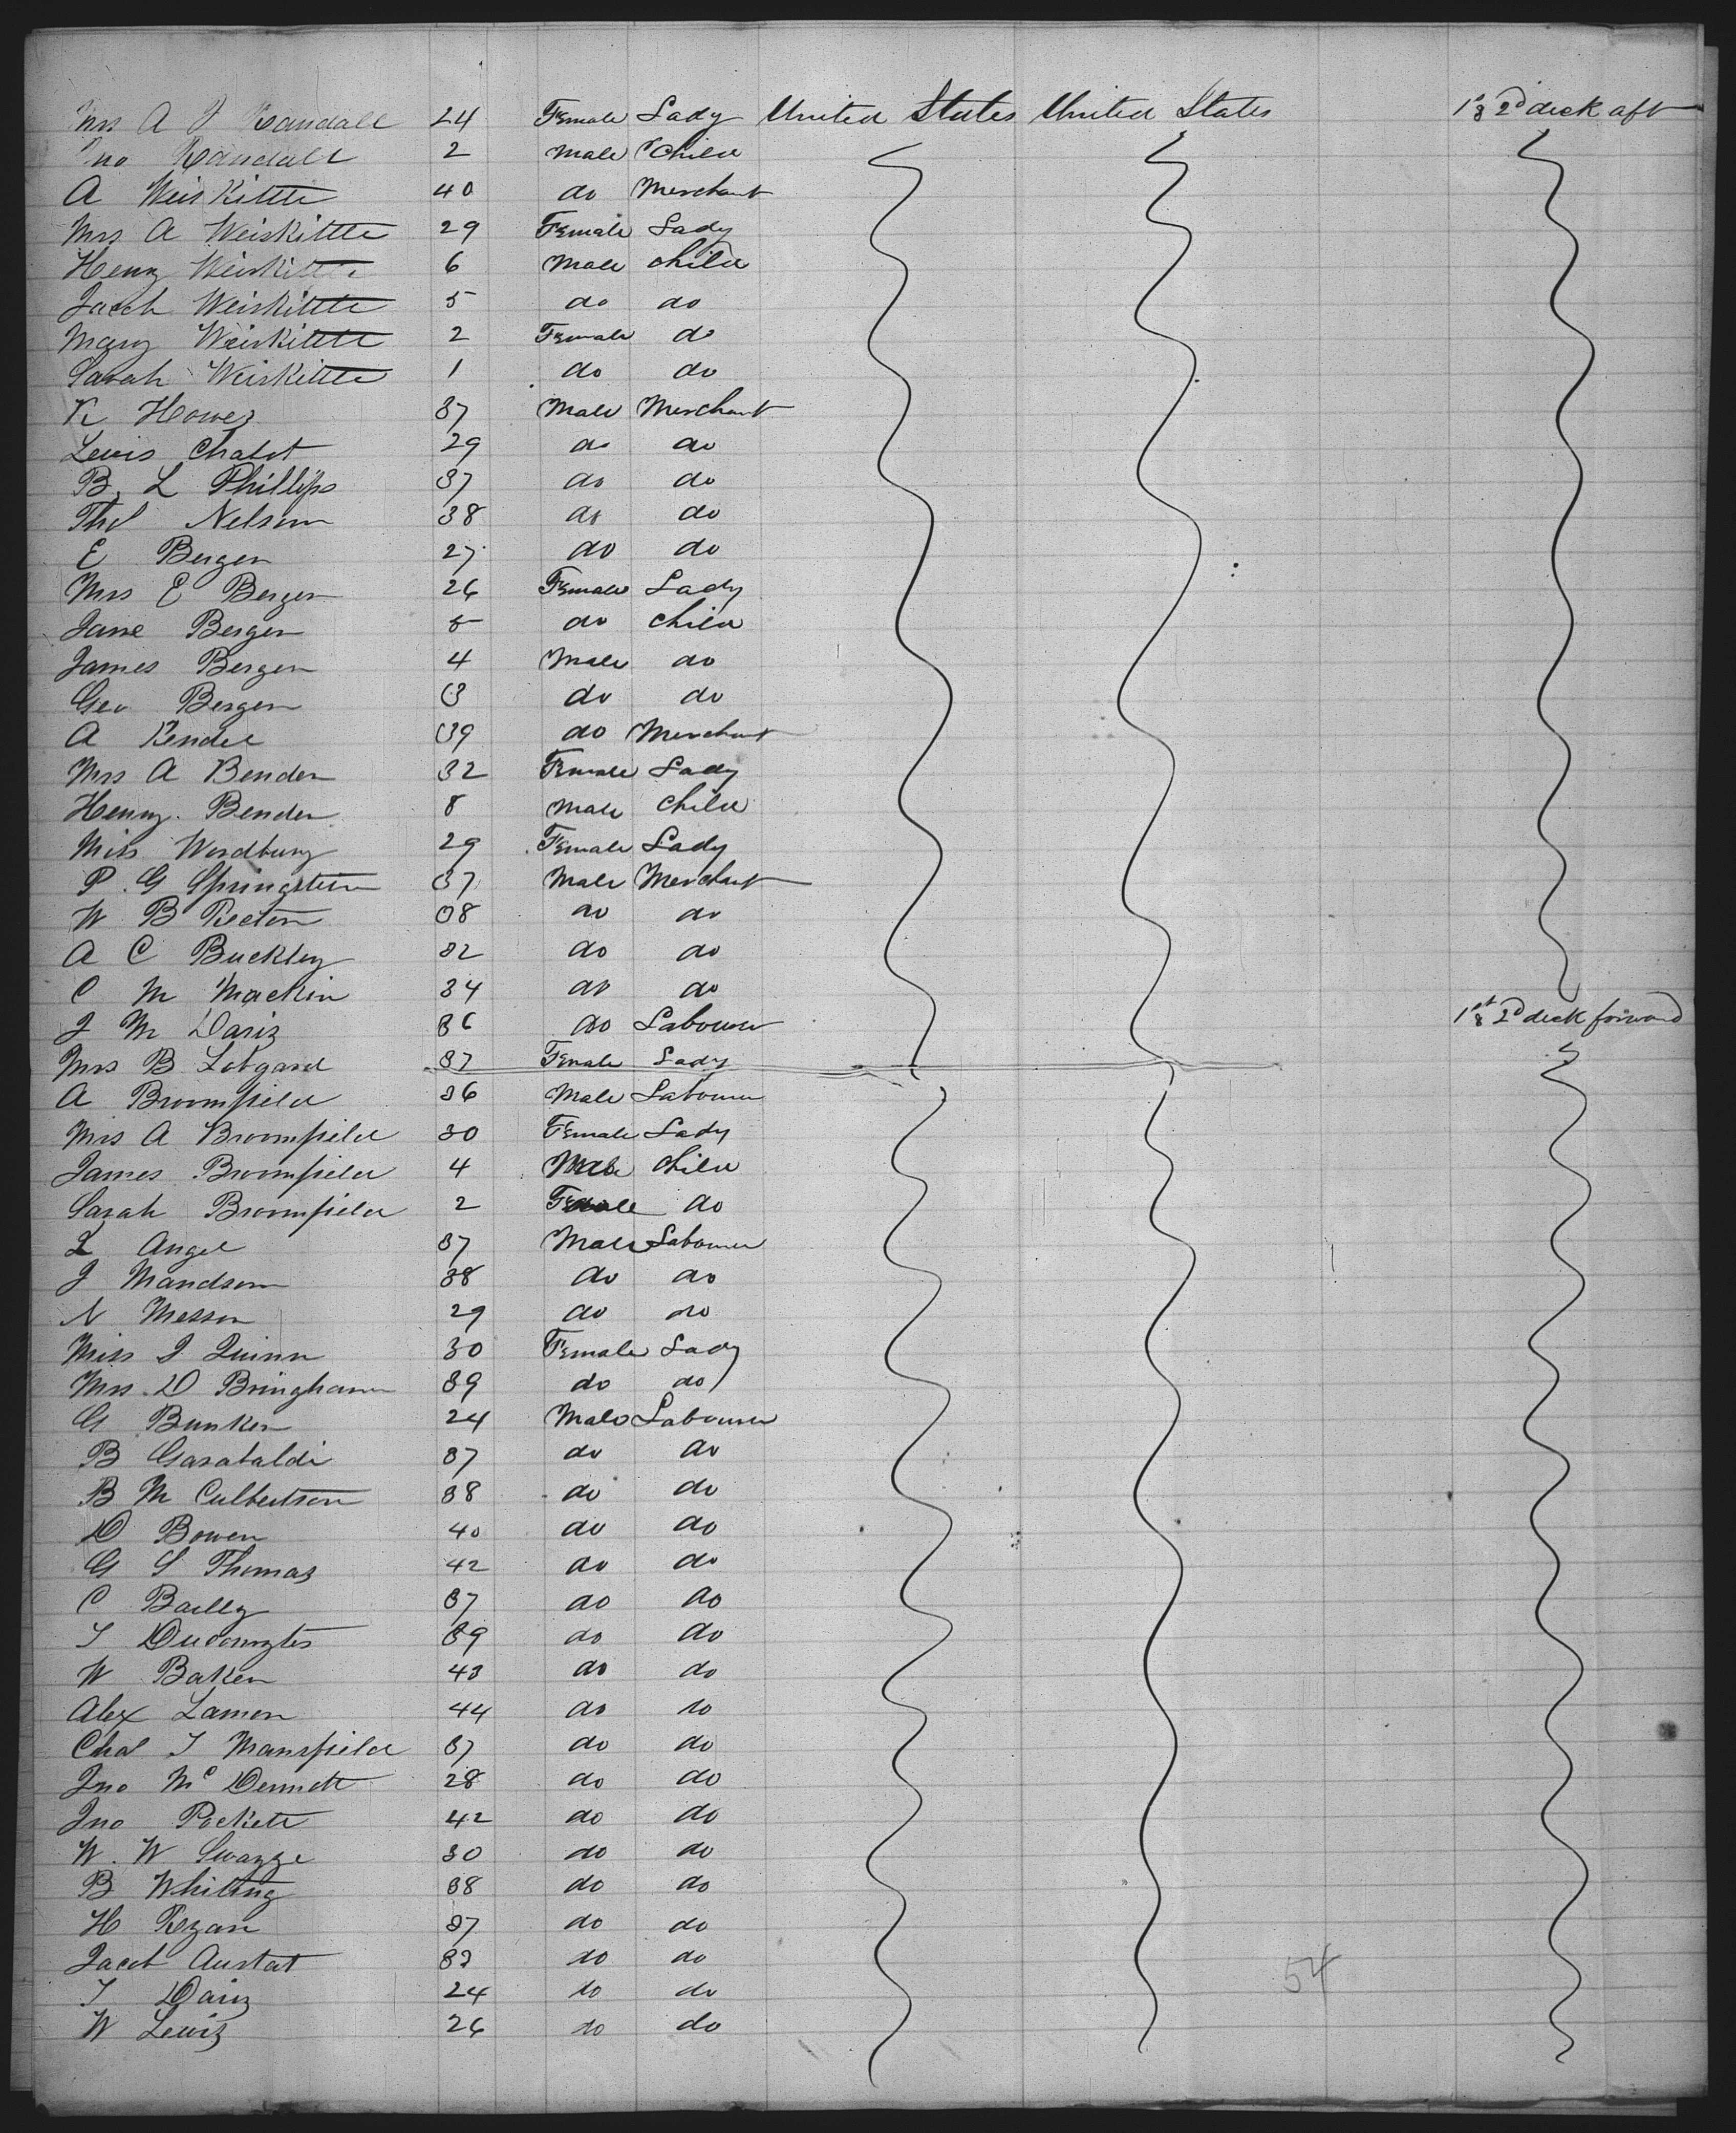 Mrs A J Randall 24 Female Lady United States United States 1st & 2d deck aft
Jno Randall 2 Male Child
A Weiskittle 40 do Merchant
Mrs A Weiskittle 29 Female Lady
Henry Weiskittle 6 Male Child
Jacob Weiskittle 5 do do
Mary Weiskittle 2 Female do
Sarah Weiskittle 1 do do
K Howes 37 Male Merchant
Lewis Chalot 29 do do
B. L Phillips 37 do do
Thos Nelson 38 do do
E Berger 27 do do
Mrs E Berger 26 Female Lady
Jane Berger 5 do Child
James Berger 4 Male do
Geo Berger 3 do do
A Bender 39 do Merchant
Mrs A Bender 32 Female Lady
Henry Bender 8 Male Child
Miss Woodbury 29 Female Lady
P. G Springstein 37 Male Merchant
W B Recton 38 do do
A C Buckley 32 do do
C M Mackin 34 do do
J M Daviz 36 do Labourer 1st & 2d deck forward
Mrs B Lobgard 37 Female Lady
A Broomfield 36 Male Labourer
Mrs A Broomfield 30 Female Lady
James Broomfield 4 Male Child
Sarah Broomfield 2 Female do
L Angel 37 Male Labourer
J Mandson 38 do do
N Messon 29 do do
Miss J Quinn 30 Female Lady
Mrs. D Bringham 39 do do
G Bunker 24 Male Labourer
B Garabaldi 37 do do
B M Culbertson 38 do do
D Bowen 40 do do
G S Thomas 42 do do
C Bailly 37 do do
39 do do
W Baker 43 do do
Alex Lamon 44 do do
Chas T Mansfield 37 do do
Jno McDermott 28 do do
Jno Pockett 42 do do
W. W Swazze 30 do do
B Whiting 38 do do
H Rezan 37 do do
Jacob Austat 32 do do
T Daviz 24 do do
54
W Lewis 26 do do